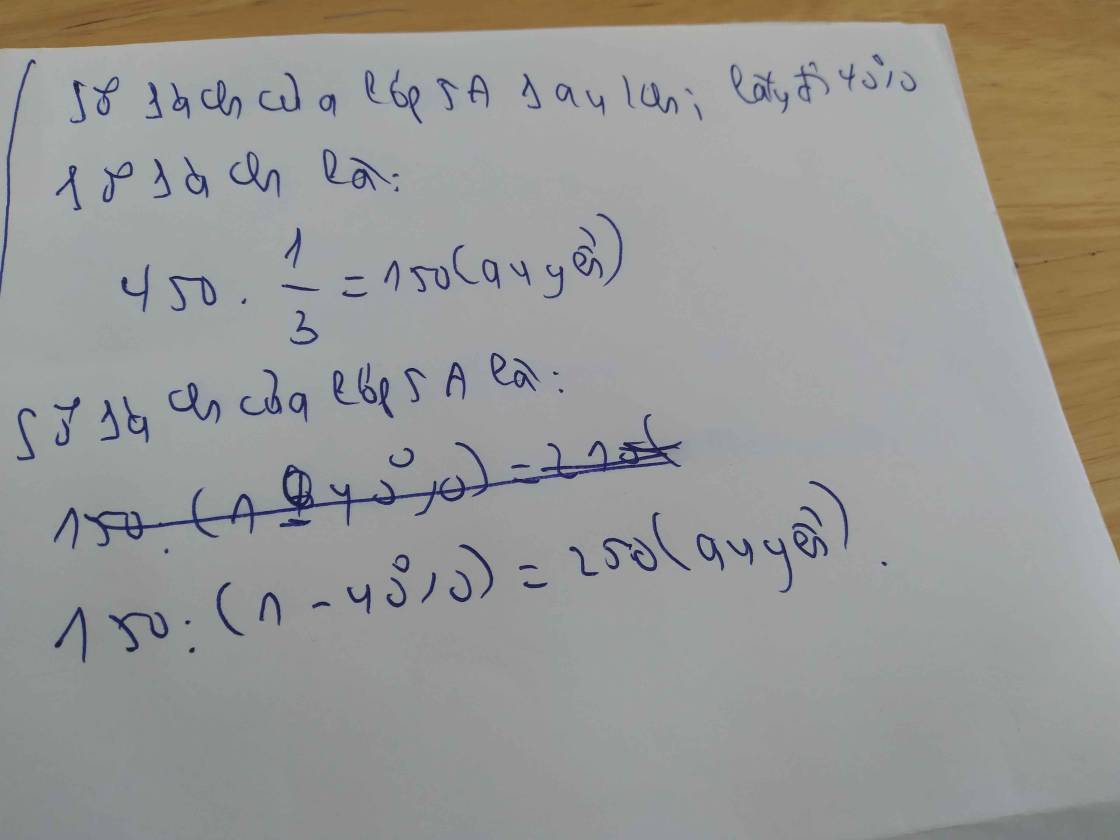 Số sách của lớp 5A sau khi lấy đi 40%
số sách là:
450 . 1/3 = 150 (quyển)
Số sách của lớp 5A là:
150 : (1 40%) = 210(
150 : (1 - 40%) = 250 (quyển).